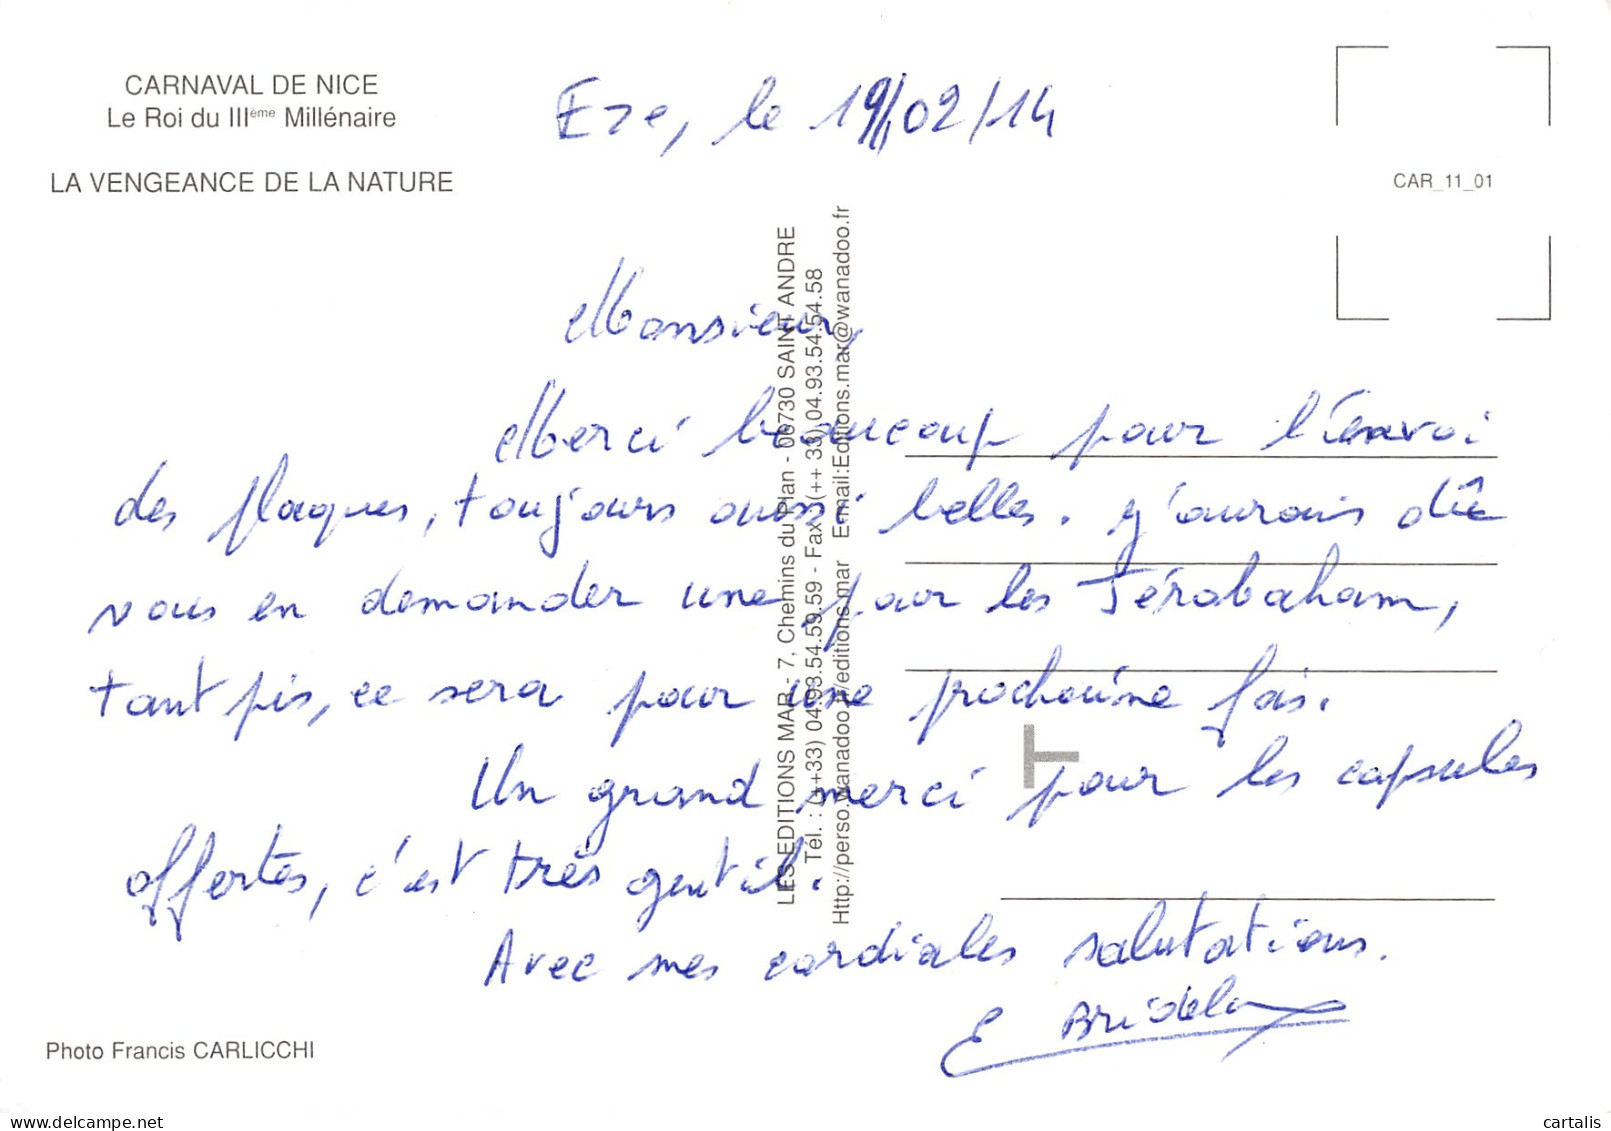 CARNAVAL DE NICE
Le Roi du IIIème Millénaire
LA VENGEANCE DE LA NATURE
Eze, le 19/02/14
CAR_11_01
Monsieur,
Merci beaucoup pour l'envoi
des plaques, toujours aussi belles. J'aurais dû
vous en demander une pour les Jérobaham,
tant pis, ce sera pour une prochaine fois.
Un grand merci pour les capsules
offertes, c'est très gentil.
Avec mes cordiales salutations.
E
LES EDITIONS MAR - 7, Chemins du Plan - 06730 SAINT ANDRE
Tél. : (++33) 04.93.54.59.59 - Fax (++ 33) 04.93.54.54.58
Http://perso.wanadoo.fr/editions.mar E-mail:Editions.mar@wanadoo.fr
Photo Francis CARLICCHI
my-west-indies.delcampe.net
cartalis